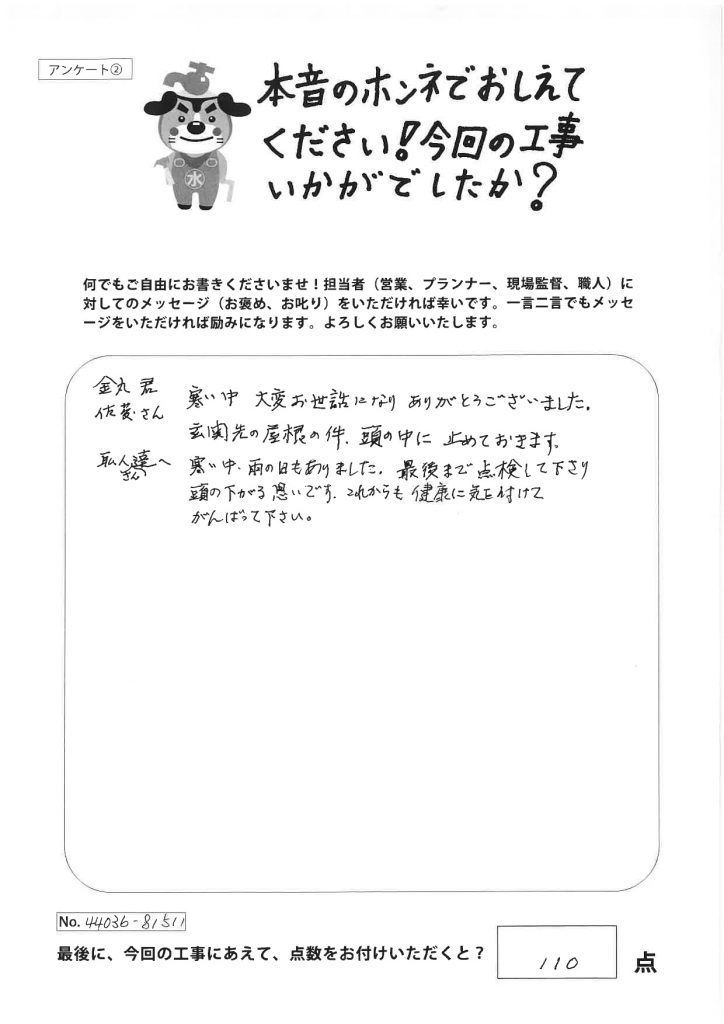 アンケート②
本音のホンネでおしえて
ください!今回の工事
いかがでしたか?
水
何でもご自由にお書きくださいませ!担当者(営業、プランナー、現場監督、職人)に
対してのメッセージ(お褒め、お叱り)をいただければ幸いです。一言二言でもメッセ
ージをいただければ励みになります。よろしくお願いいたします。
金丸 君
佐々さん
寒い中 大変お世話になり ありがとうございました。
玄関先の屋根の件、頭の中に 止めておきます。
職人達へ
さん
寒い中、雨の日もありました。最後まで点検して下さり
頭の下がる思いです。これからも健康に気を付けて
がんばって下さい。
No. 44036-81511
最後に、今回の工事にあえて、点数をお付けいただくと?
110 点